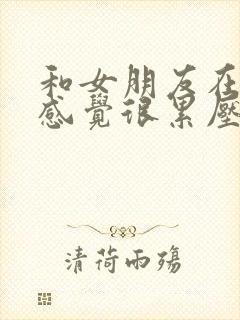 和女朋友在
感覺很累壓
清荷雨殤